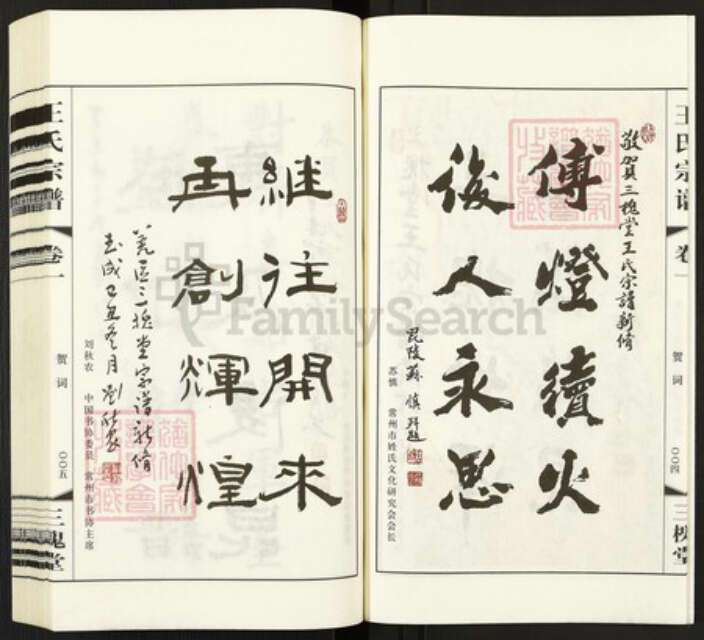 王氏宗谱
卷一
贺词
〇〇四
三槐堂
敬贺三槐堂王氏宗譜新修
傳燈續火
後人永思
毘陵蘇慎拜題
苏慎 常州市姓氏文化研究会会长
FamilySearch
継往開來
再創輝煌
三槐堂宗谱新修
刘秋农 中国书协委员 常州市书协主席
王氏宗譜
卷一
贺词
〇〇五
三槐堂